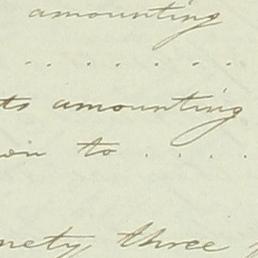 amounting
. . . . . . .
ts amounting
to . . . .
nety three